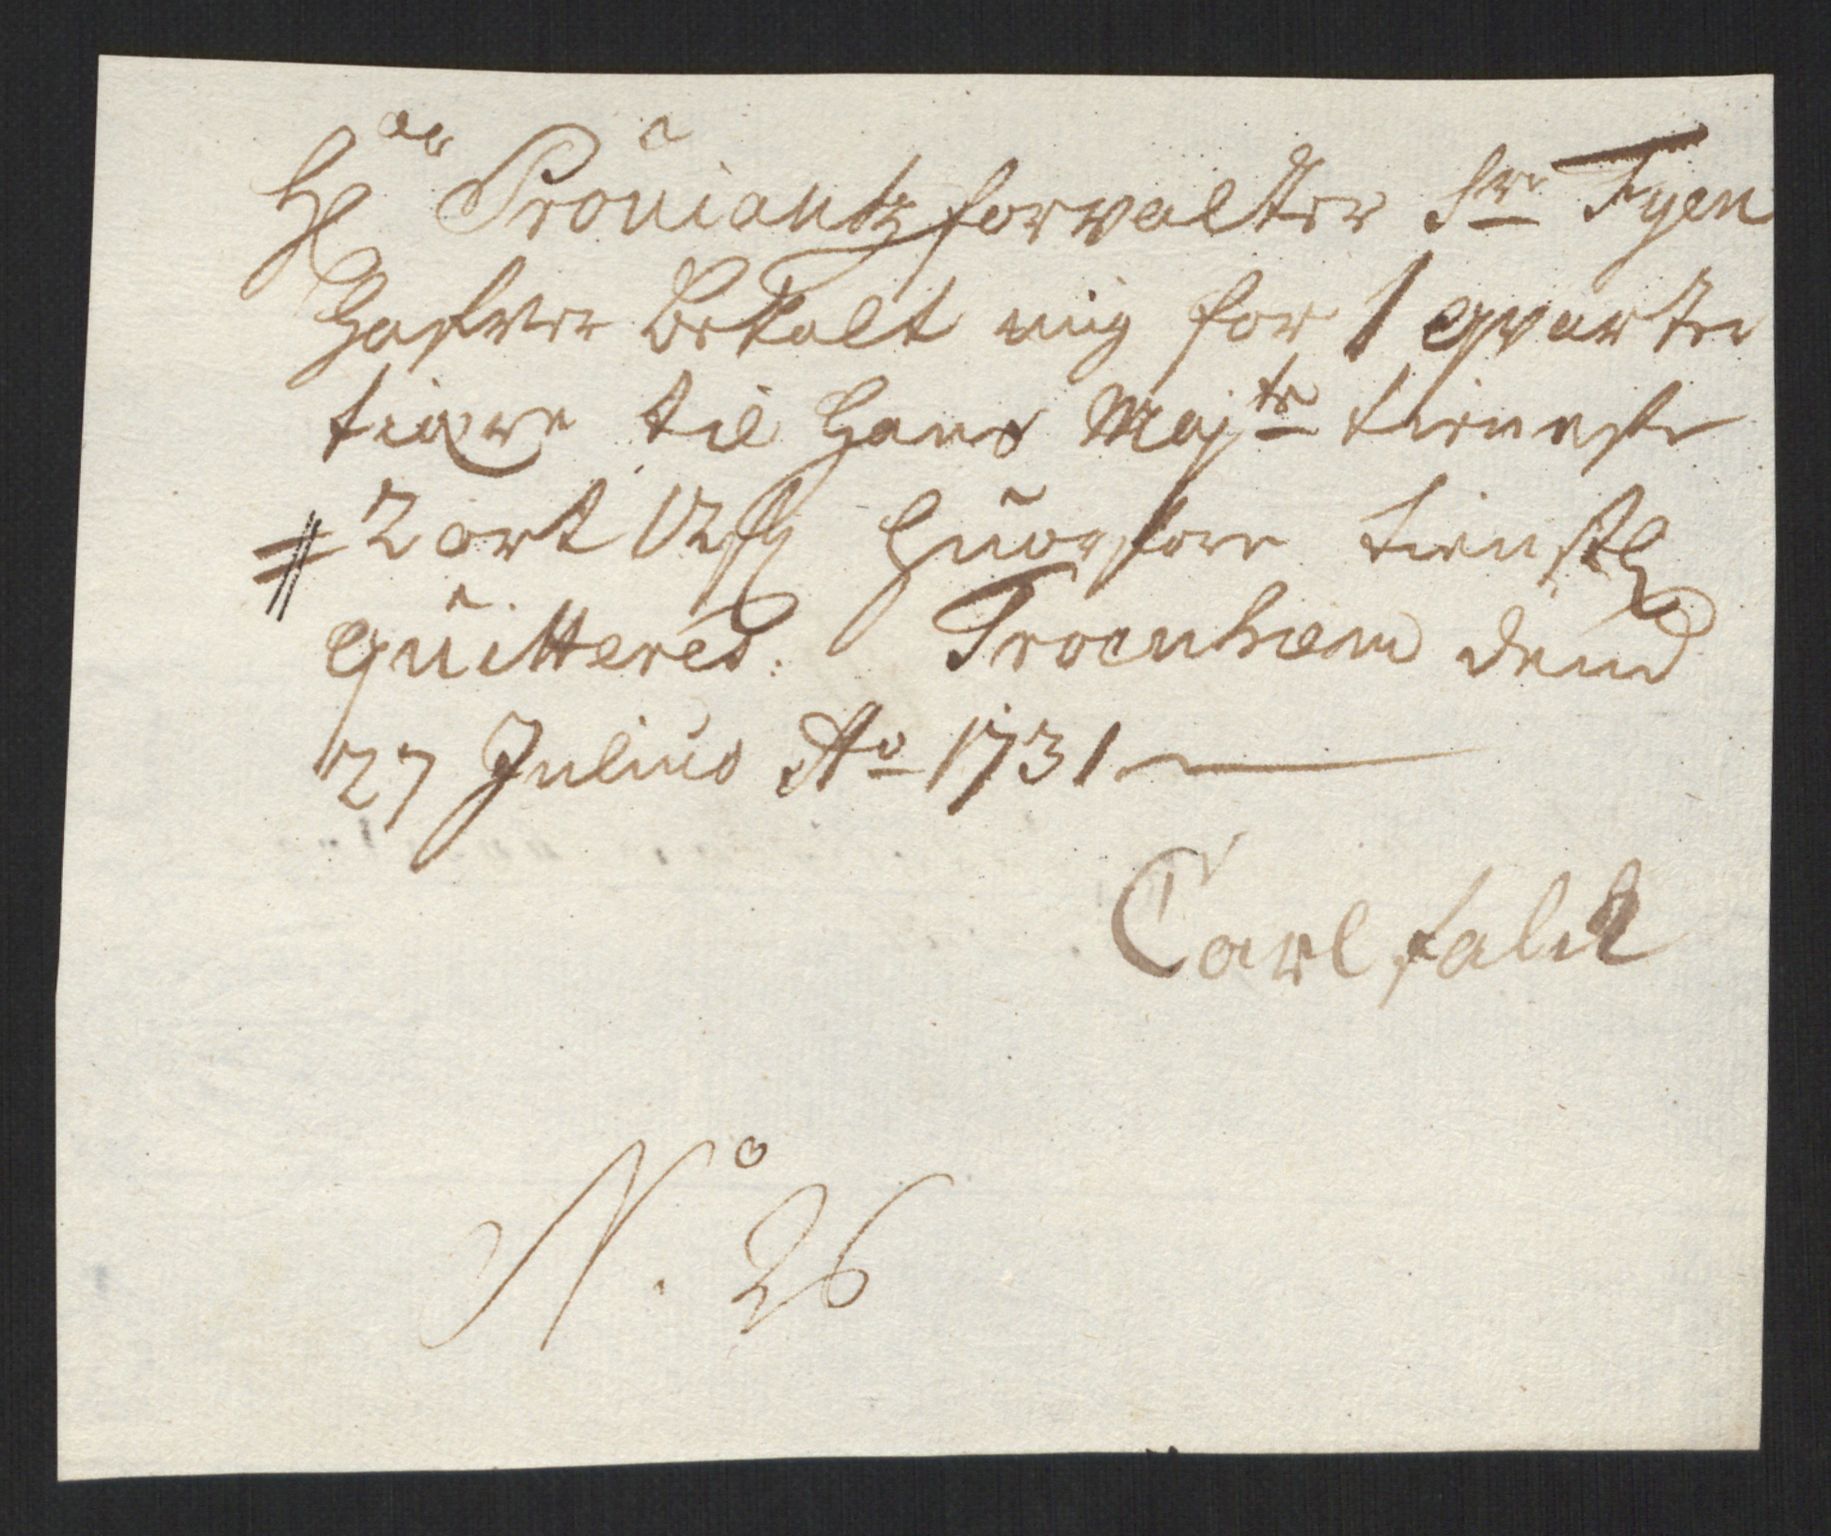 Hr Proviantz forvalter Sr Fyen
Hafver Betalt mig for 1 qvarter
tiære til Hans Majts tieneste
2 ort 12 s Huorfore tienstl
quitteres. Tronhiem dend
27 Julius Ao 1731
Carl Falck
No. 26